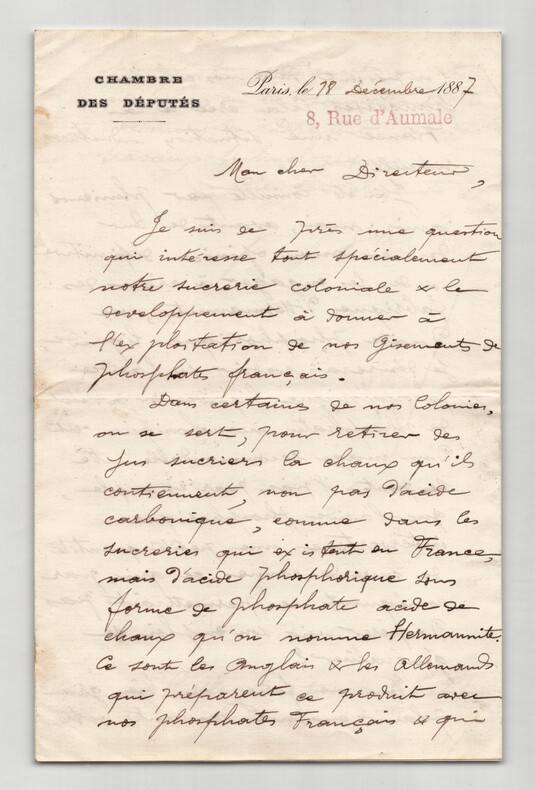 CHAMBRE
DES DÉPUTÉS
Paris, le 18 Décembre 1887
8, Rue d'Aumale
Mon cher Directeur,
Je suis de près une question
qui intéresse tout spécialement
notre sucrerie coloniale & le
developpement à donner à
l'exploitation de nos Gisements de
phosphates français.
Dans certaines de nos Colonies,
on se sert, pour retirer des
jus sucriers la chaux qu'ils
contiennent, non pas d'acide
carbonique, comme dans les
sucreries qui existent en France,
mais d'acide phosphorique sous
forme de phosphate acide de
chaux qu'on nomme Hermannite.
Ce sont les Anglais & les Allemands
qui préparent ce produit avec
nos phosphates Français & qui